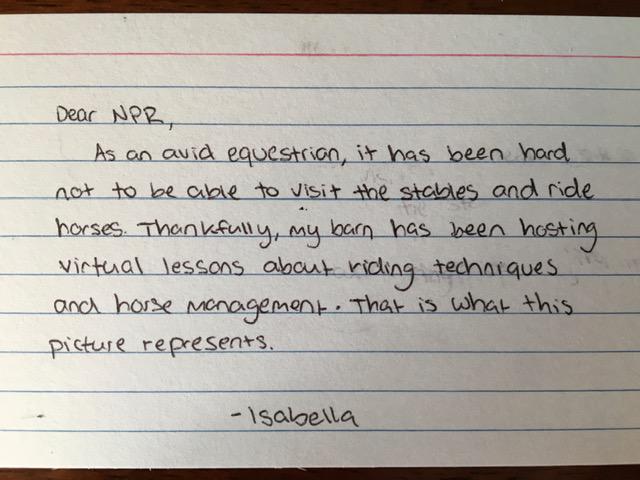 Dear NPR,
As an avid equestrian, it has been hard
not to be able to visit the stables and ride
horses. Thankfully, my barn has been hosting
virtual lessons about riding techniques
and horse management. That is what this
picture represents.
-Isabella